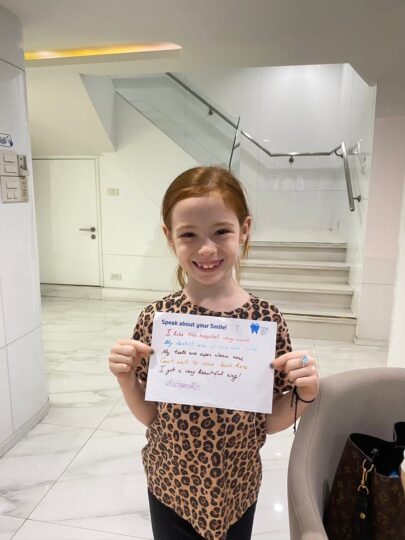 Speak about your Smile!
I like this hospital very much
My dentist was so
My teeth are super
Can't wait to come back here
I got a very Beautiful ring!